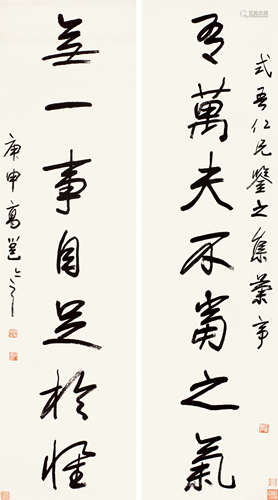 式吾仁兄鑒之集蘭亭
有萬夫不當之氣
無一事自足於懷
庚申高邕之